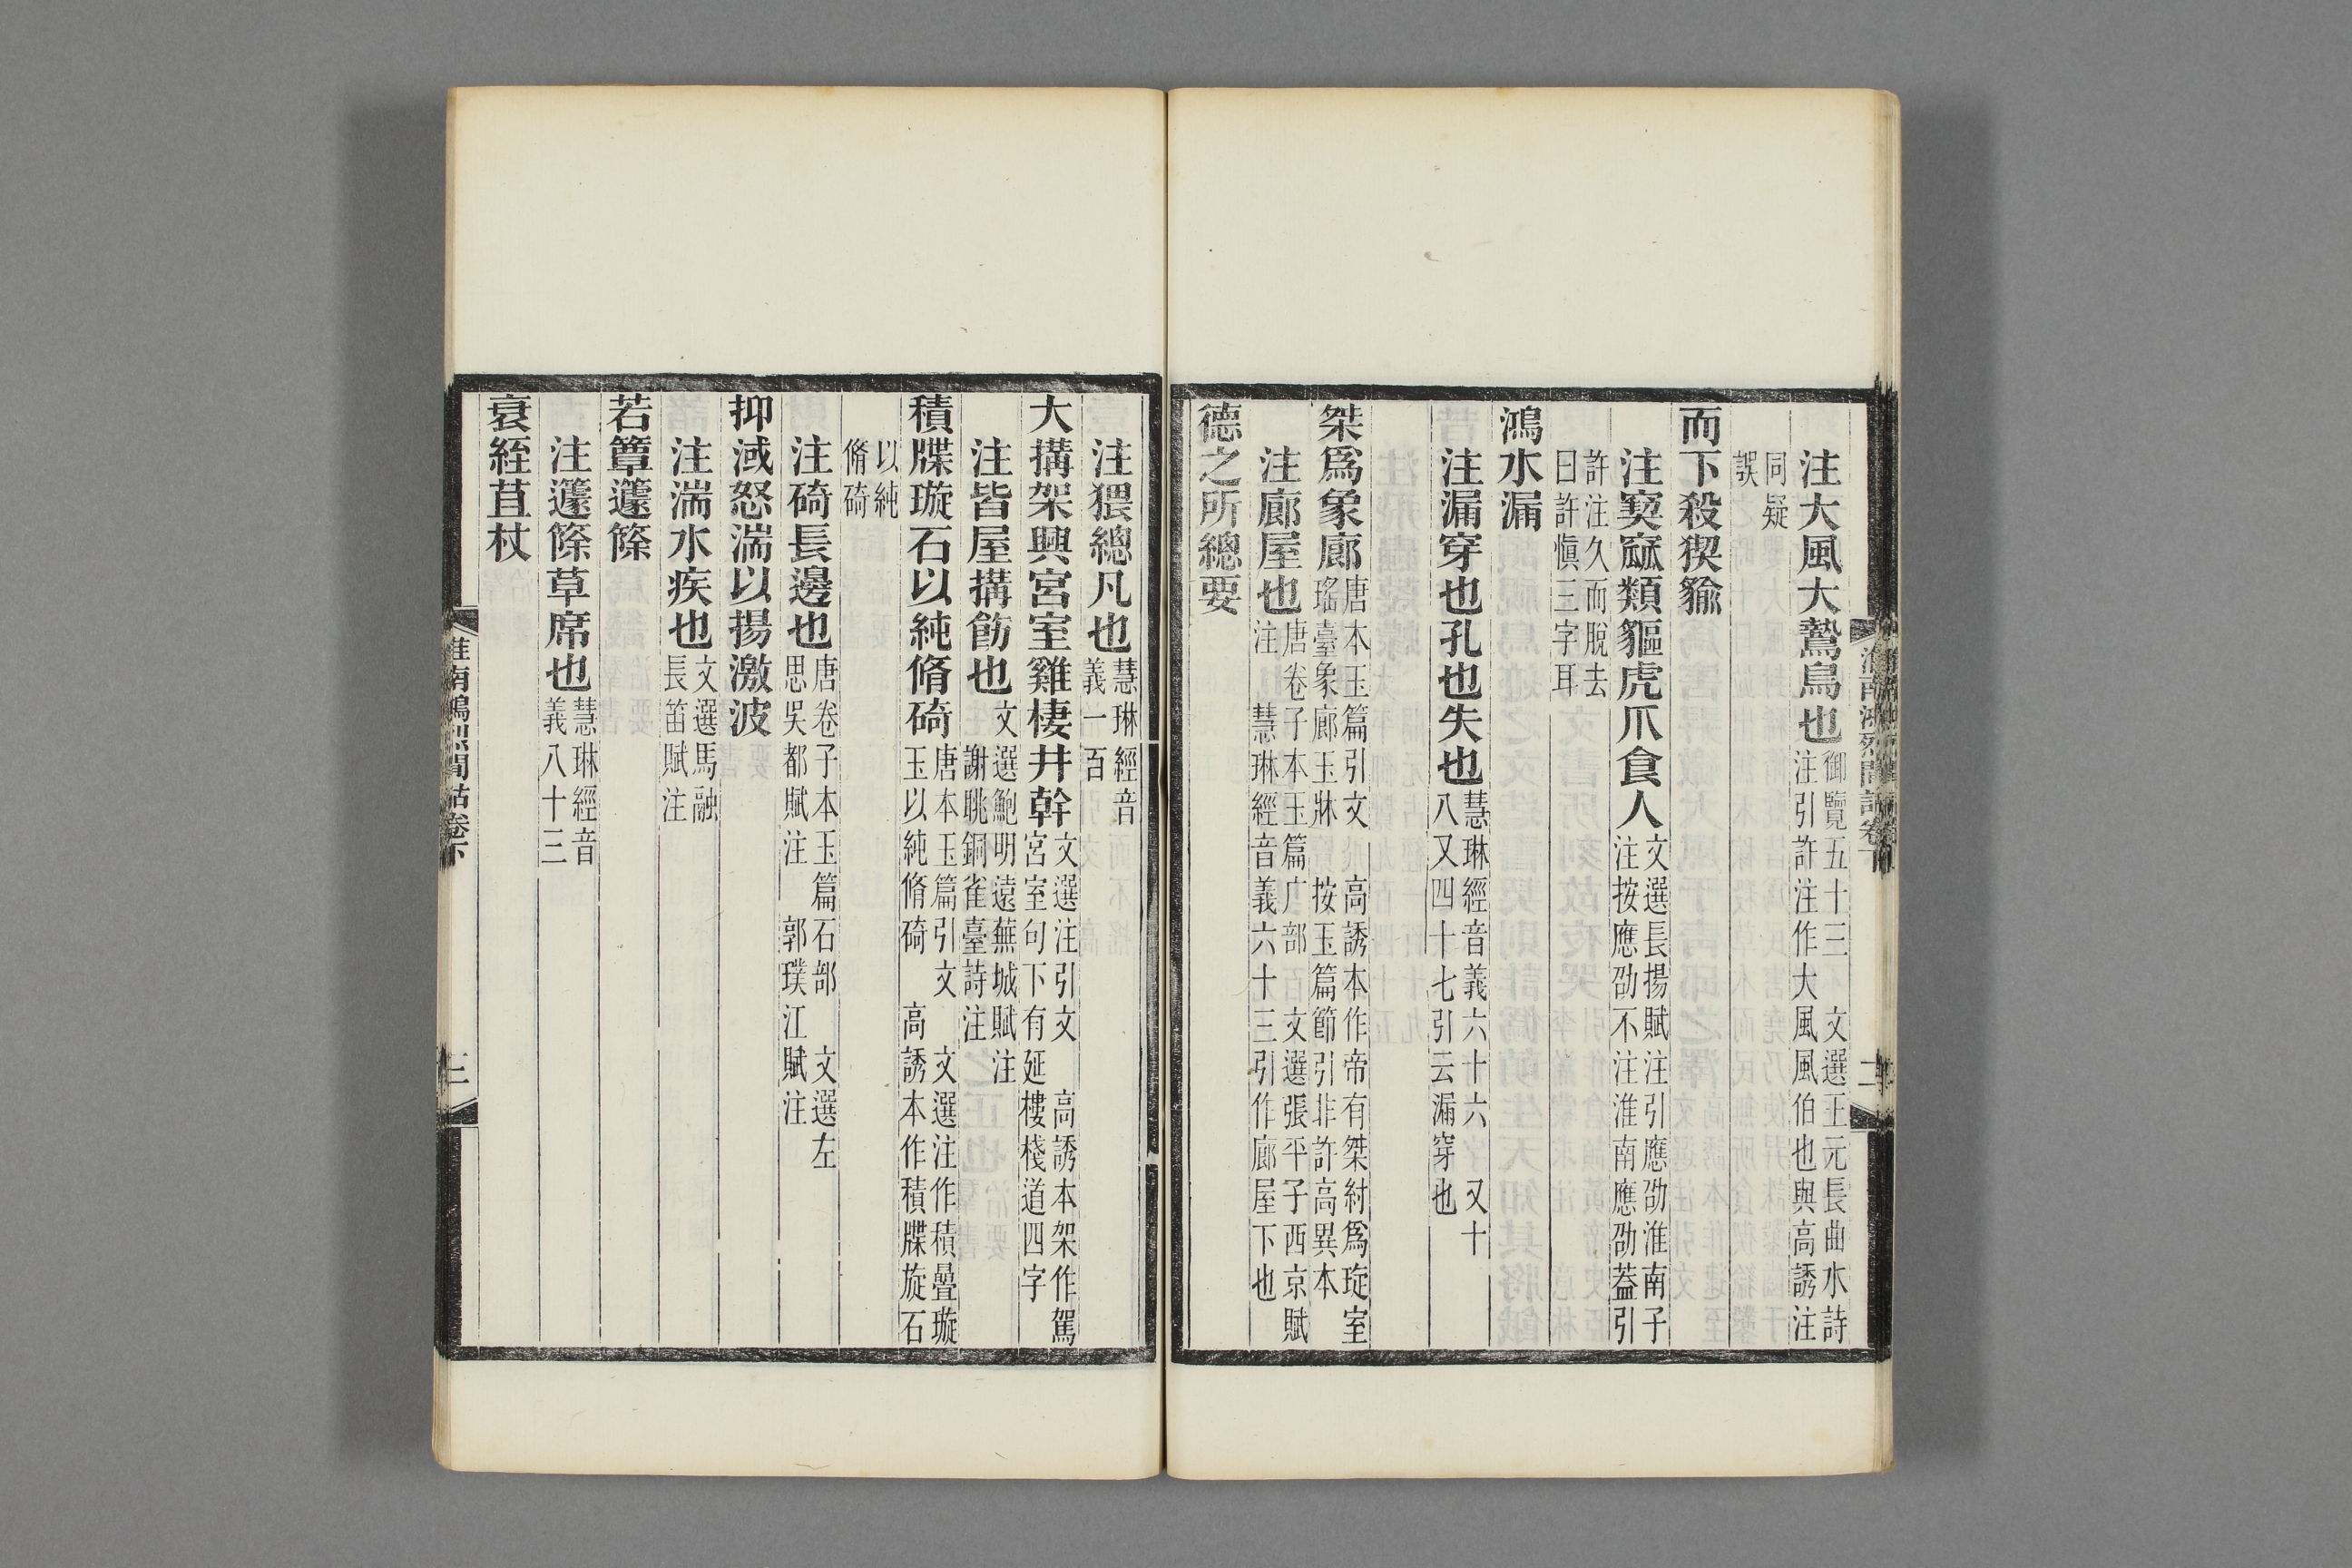 注大風大鷙鳥也御覽五十三　文選王元長曲水詩
注引許注作大風風伯也與高誘注
同疑
誤
而下殺猰貐
注窫窳類貙虎爪食人文選長揚賦注引應劭淮南子
注按應劭不注淮南應劭蓋引
許注久而脫去
曰許愼三字耳
鴻水漏
注漏穿也孔也失也慧琳經音義六十六　又十
八又四十七引云漏穿也
桀爲象廊唐本玉篇引文　高誘本作帝有桀紂爲琁室
瑤臺象廊玉牀　按玉篇節引非許高異本
注廊屋也唐卷子本玉篇广部　文選張平子西京賦
注　慧琳經音義六十三引作廊屋下也
德之所總要
淮南鴻烈閒詁卷下
二
注猥總凡也慧琳經音
義一百
大搆架興宮室雞棲井幹文選注引文　高誘本架作駕
宮室句下有延樓棧道四字
注皆屋搆飭也文選鮑明遠蕪城賦注
謝眺銅雀臺詩注
積牒璇石以純脩碕唐本玉篇引文　文選注作積疊璇
玉以純脩碕　高誘本作積牒旋石
以純
脩碕
注碕長邊也唐卷子本玉篇石部　文選左
思吳都賦注　郭璞江賦注
抑淢怒湍以揚激波
注湍水疾也文選馬融
長笛賦注
若簟籧篨
注籧篨草席也慧琳經音
義八十三
衰絰苴杖
淮南鴻烈閒詁卷下
三